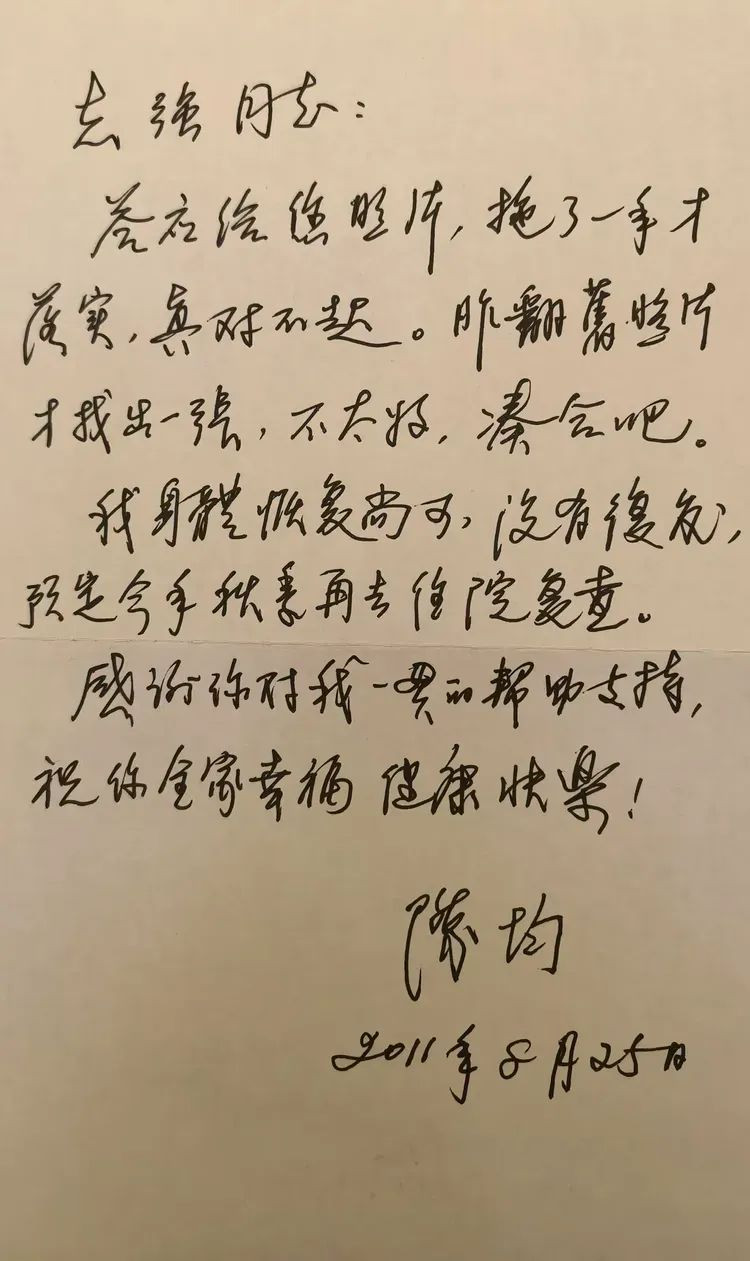 志強同志：
答应给您照片，拖了一年才
落实，真对不起。昨翻舊照片
才找出一張，不太好，凑合吧。
我身體恢复尚可，没有復发，
预定今年秋季再去住院复查。
感谢你对我一贯的帮助支持，
祝你全家幸福健康快樂！
均
2011年8月25日